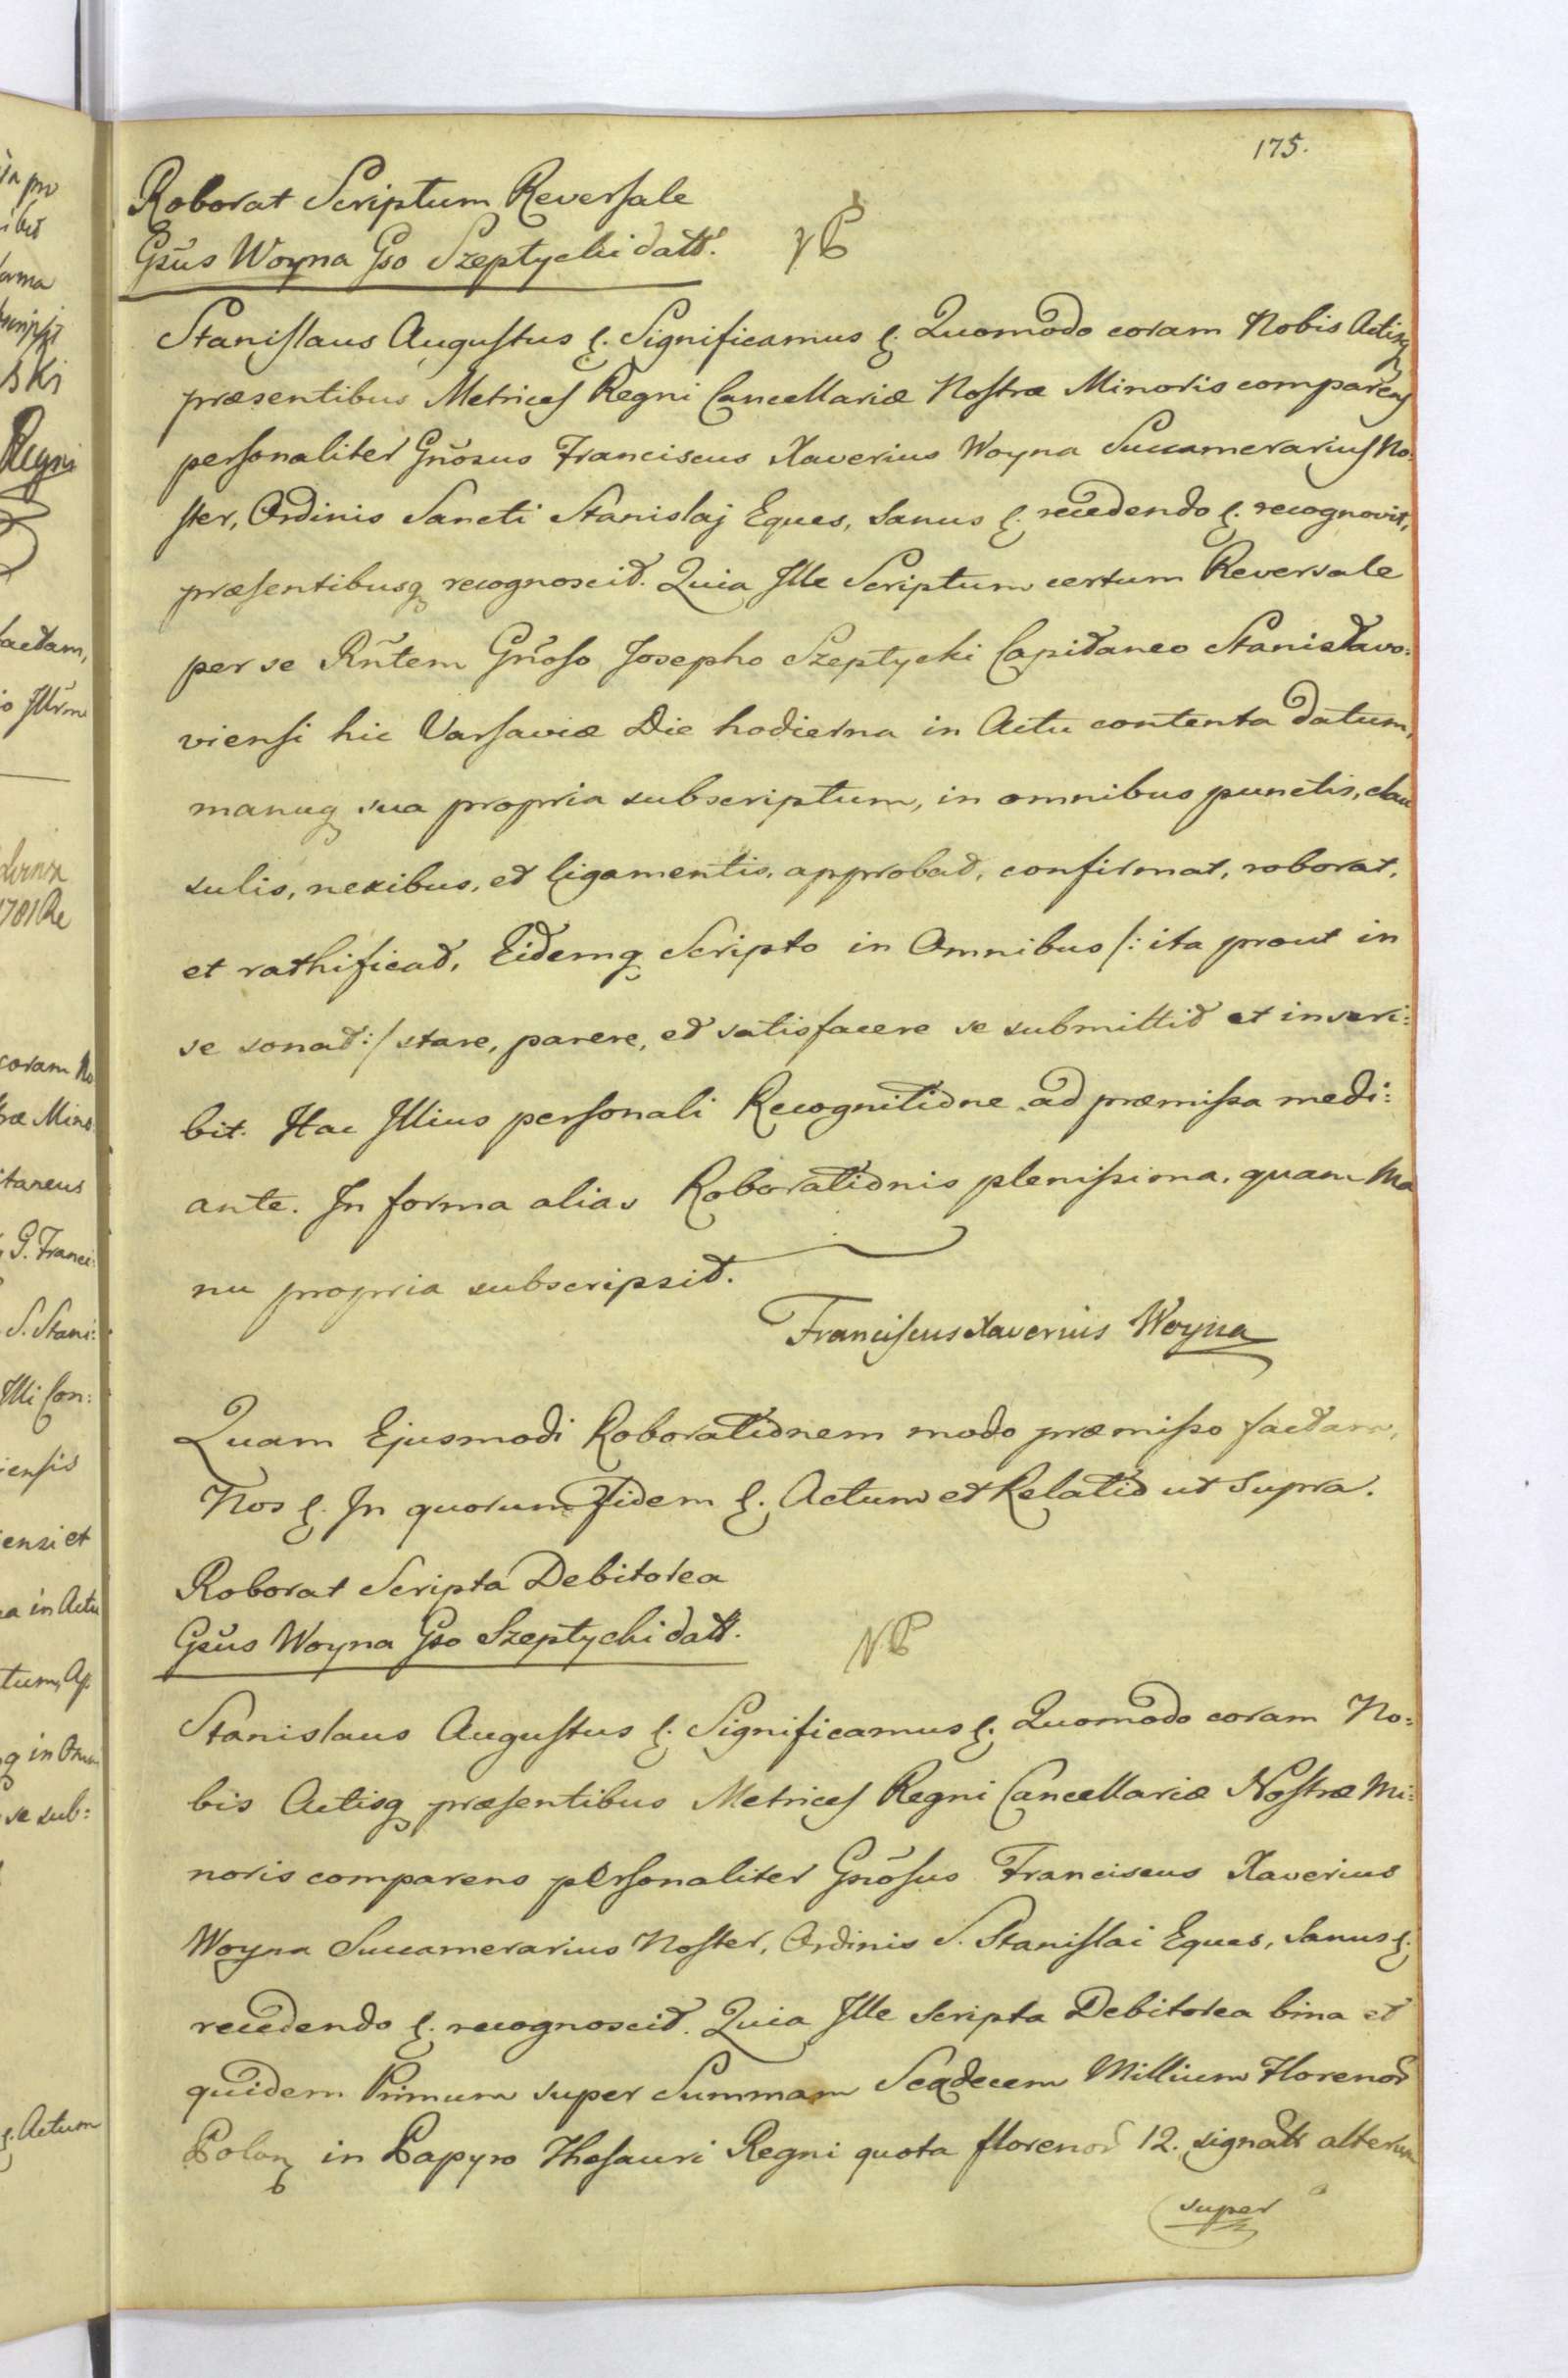 175.
Roborat Scriptum Reversale
Gsũs Woyna Gso Szeptycki datt.
Stanislaus Augustus &. Significamus &. Quomodo coram Nobis Actisq
præsentibus Metrices Regni Cancellariæ Nostræ Minoris comparens
personaliter Gñosus Franciscus Xaverius Woyna Succamerarius No:
ster, Ordinis Sancti Stanislaj Eques, sanus &. recedendo &. recognovit,
præsentibusq recognoscit. Quia Ille Scriptum certum Reversale
per se Rñtem Gñoso Josepho Szeptycki Capitaneo Stanisławo:
viensi hic Varsaviæ Die hodierna in Actu contenta datum,
manuq sua propria subscriptum, in omnibus punctis, clau
sulis, nexibus, et ligamentis, approbat, confirmat, roborat,
et rathificat, Eidemq Scripto in Omnibus /: ita prout in
se sonat :/ stare, parere, et satisfacere se submittit et inscri:
bit. Hac Illius personali Recognitione ad præmissa medi:
ante. In forma alias Roborationis plenissima, quam Ma
nu propria subscripsit.
Franciscus Xaverius Woyna
Quam Ejusmodi Roborationem modo præmisso factam,
Nos &. In quorum Fidem &. Actum et Relatio ut supra.
Roborat Scripta Debitorea
Gsũs Woyna Gso Szeptycki datt.
Stanislaus Augustus &. Significamus &. Quomodo coram No:
bis Actisq præsentibus Metrices Regni Cancellariæ Nostræ Mi:
noris comparens personaliter Gñosus Franciscus Xaverius
Woyna Succamerarius Noster, Ordinis S. Stanislai Eques, sanus &.
recedendo &. recognoscit. Quia Ille scripta Debitorea bina et
quidem Primum super Summam Sexdecem Millium Florenor
Polon in Papyro Thesauri Regni quota florenor 12. signatt alterum
super